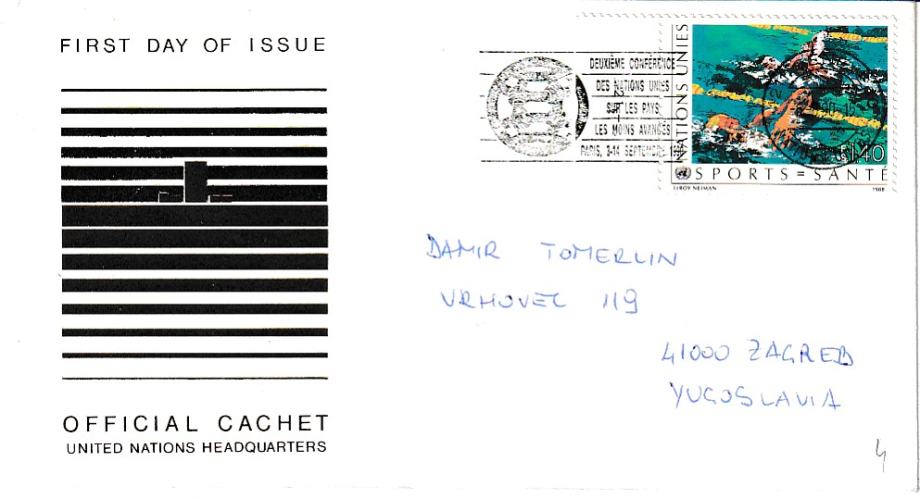 FIRST DAY OF ISSUE
DEUXIÈME CONFÉRENCE
DES NATIONS UNIES
SUR LES PAYS
LES MOINS AVANCÉS
PARIS, 3-14 SEPTEMBRE
NATIONS UNIES
1,40
SPORTS = SANTÉ
LEROY NEIMAN 1988
DAMIR TOMERLIN
VRHOVEC 119
41000 ZAGREB
YUGOSLAVIA
OFFICIAL CACHET
UNITED NATIONS HEADQUARTERS
4